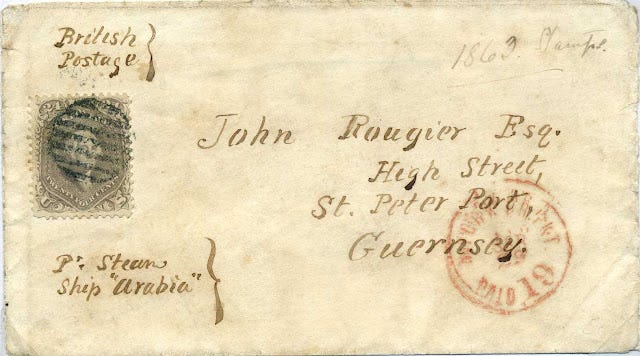 British
Postage
1863 Stamps.
John Rougier Esq.
High Street,
St. Peter Port,
Guernsey.
Pr. Steam
Ship "Arabia"
PAID 19